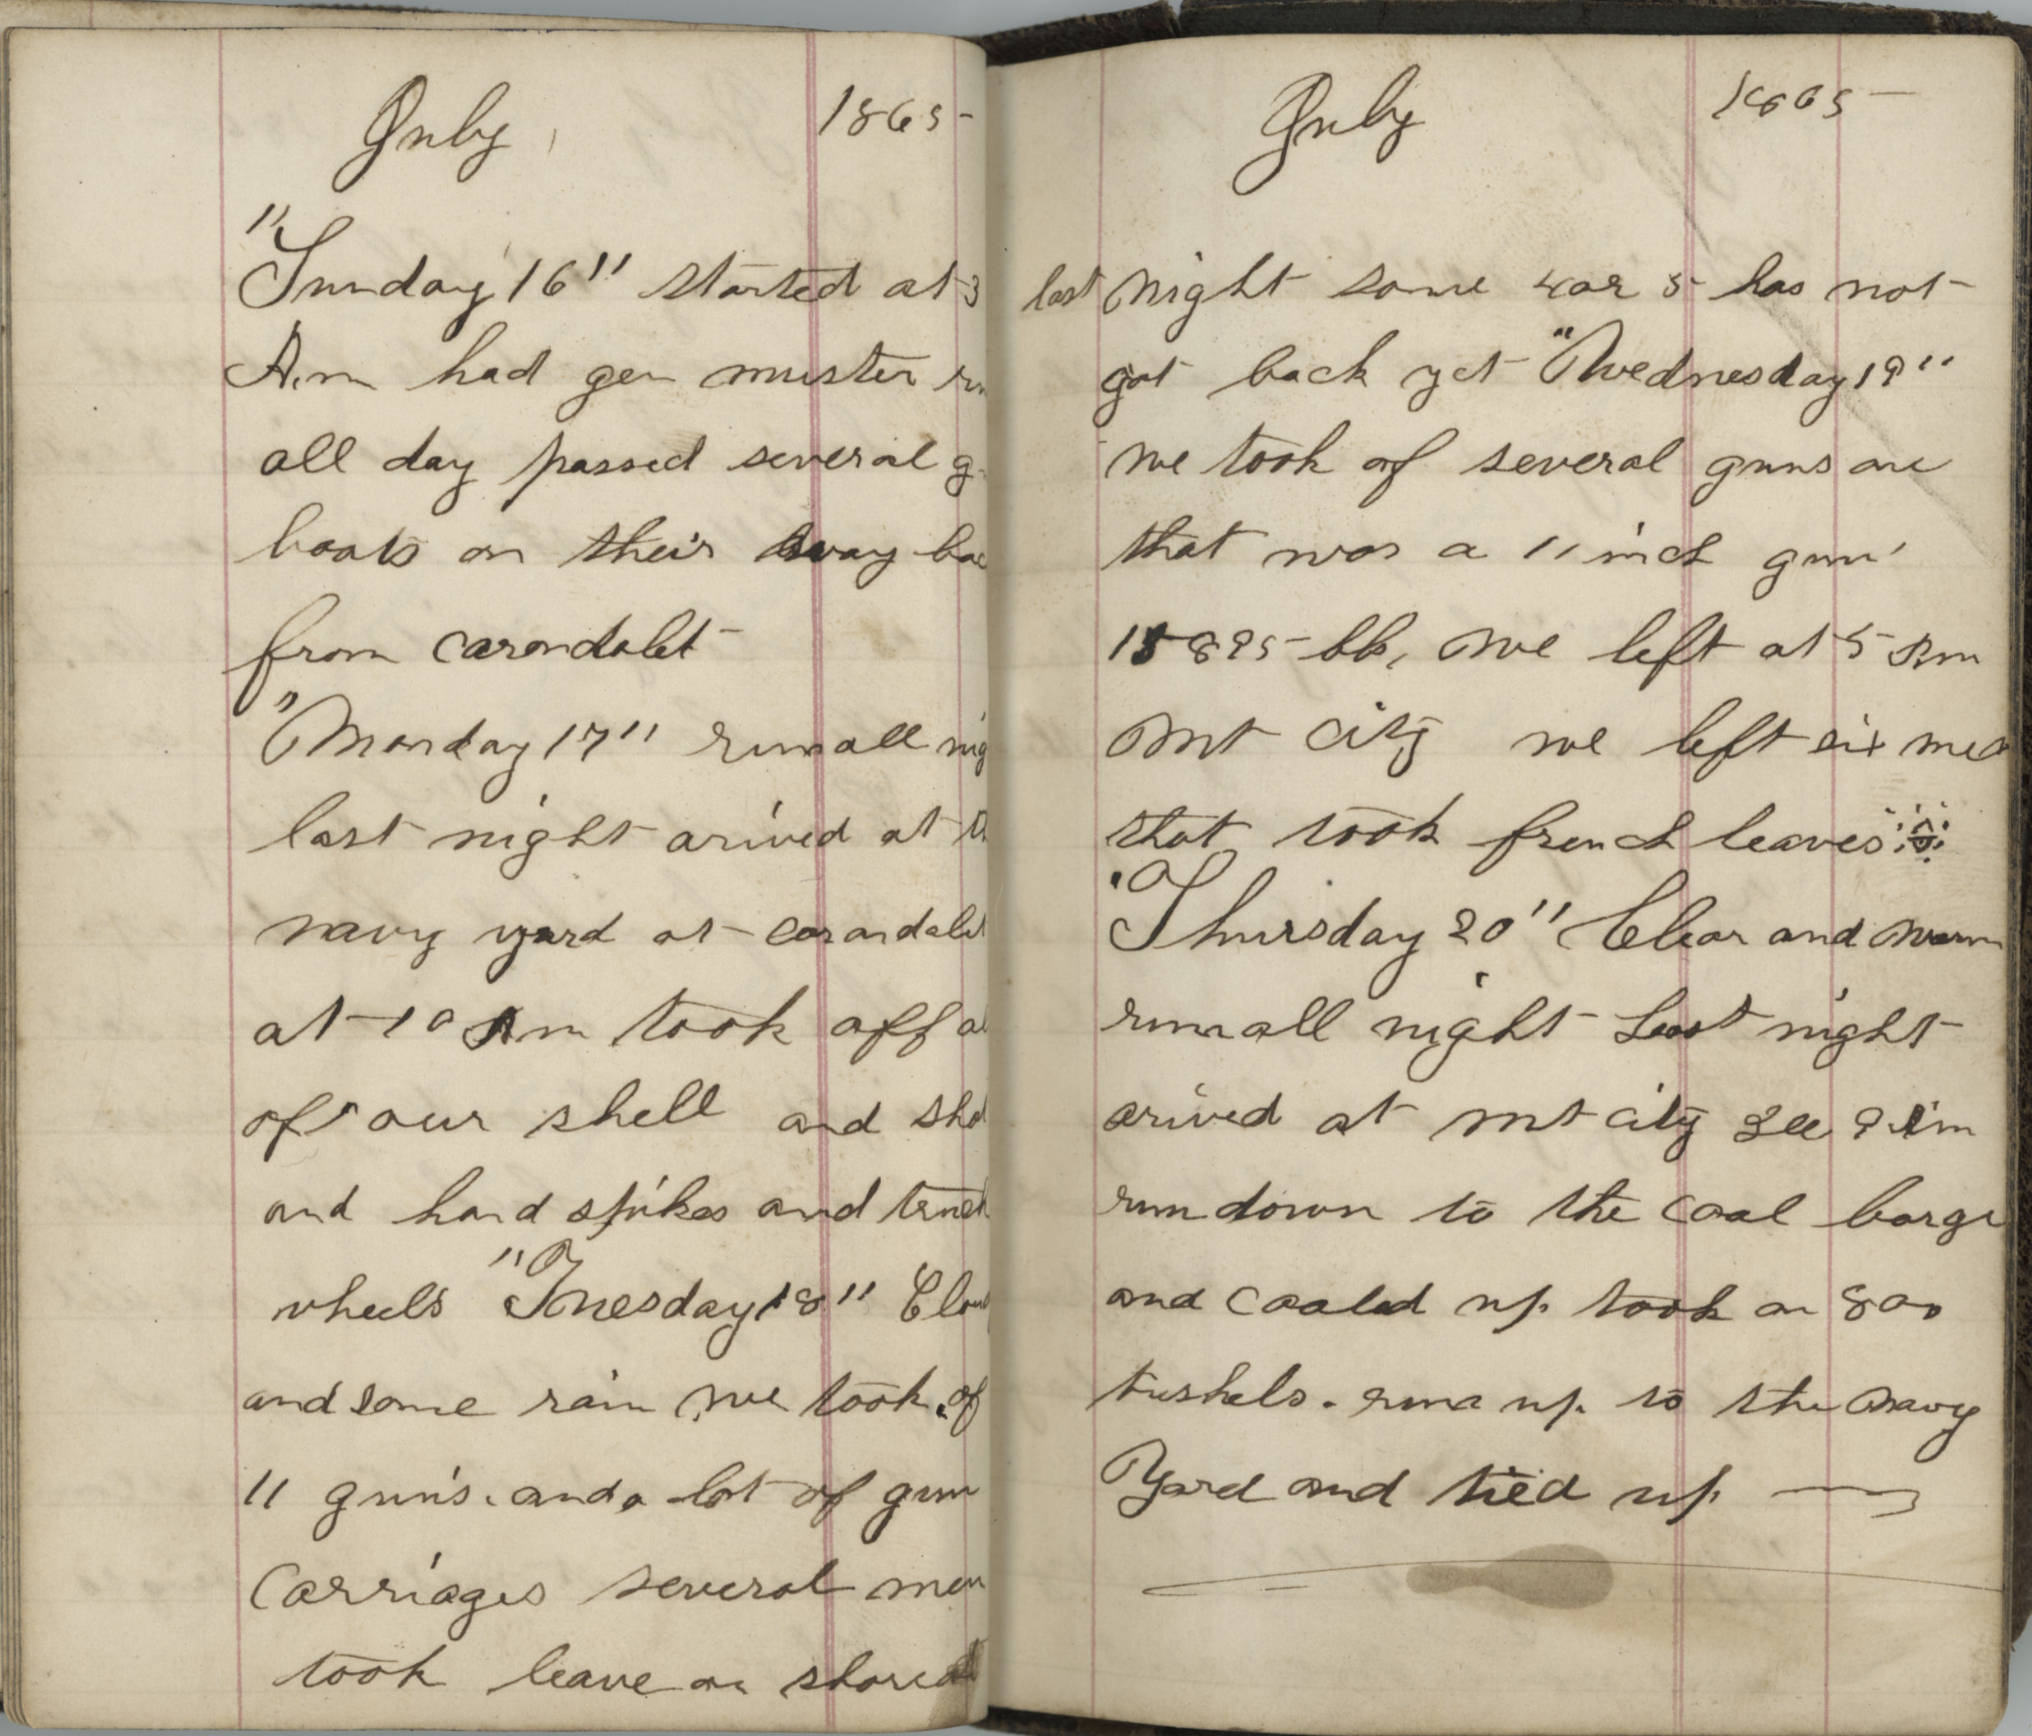 July 1865-
"Sunday 16" started at 3
A.m had gen muster
all day passed several
boats on their way
from Carondalet
"Monday 17" run all
last night arived at
navy yard at Carondalet
at 10 Am took off
of our shell and
and hand spikes and
wheels "Tuesday 18"
and some rain we took of
11 guns. and a lot of gun
Carriages several men
took leave on shore
July 1865-
last night some 4 or 5 has not
got back yet "Wednesday 19"
we took of several guns one
that was a 11 inch gun
15895 lb, we left at 5 Pm
Mt City we left six men
that took french leaves
"Thursday 20" Clear and warm
run all night Last night
arived at Mt City Ill 9 Am
run down to the coal barge
and coaled up took on 800
bushels. run up to the Navy
Yard and tied up